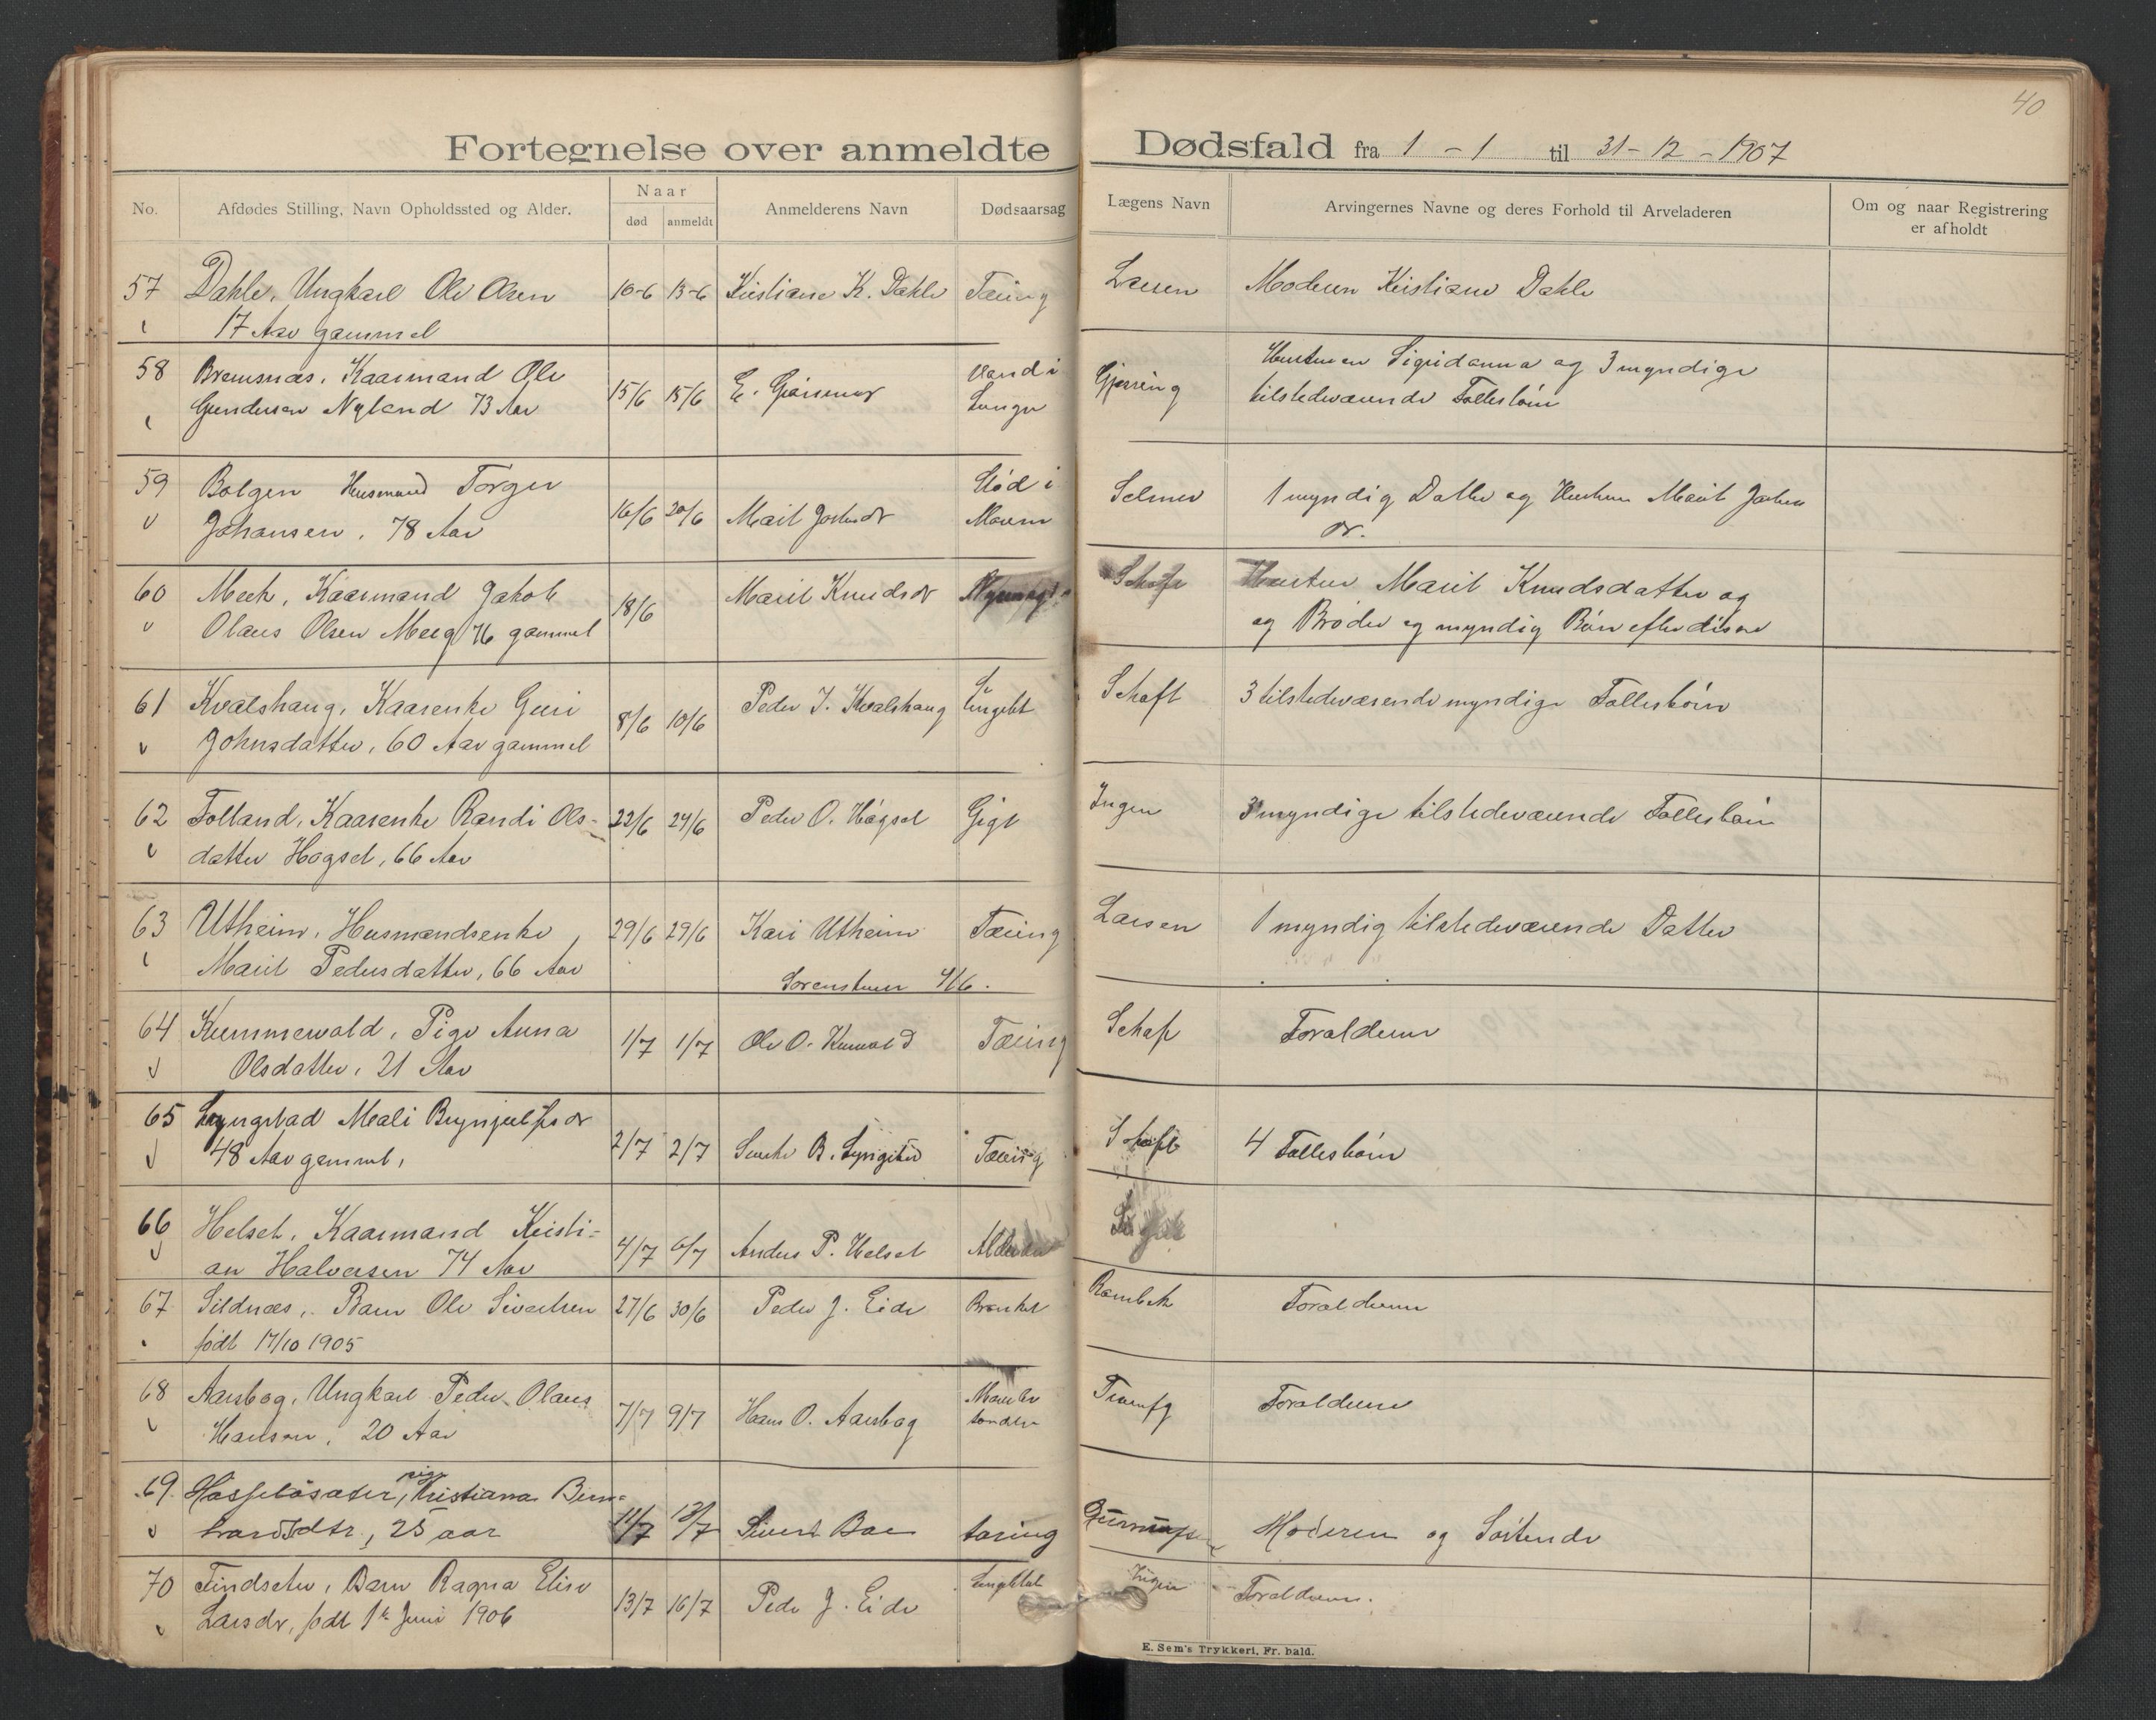 40
Fortegnelse over anmeldte Dødsfald fra 1 - 1 til 31 - 12 - 1907
No. Afdødes Stilling, Navn Opholdssted og Alder. Naar død anmeldt Anmelderens Navn Dødsaarsag Lægens Navn Arvingernes Navne og deres Forhold til Arveladeren Om og naar Registrering er afholdt
57 Dahle, Ungkarl Ole Olsen 10-6 13-6 Kristiane K. Dahle Tæring Larsen Moderen Kristiane Dahle
17 Aar gammel
58 Bremsnæs, Kaarmand Ole 15/6 15/6 E. Vand i Gjørring Hustruen Sigridanna og 3 myndige
Gundersen Nyland 73 Aar Lunge tilstedeværende Fællesbørn
59 Bolgen Husmand Torger 16/6 20/6 Marit Stød i Selmer 1 myndig Datter og Hustru Marit
Johansen, 78 Aar Maven dr.
60 Meek, Kaarmand Jakob 18/6 Marit Knudsdr Schaft Hustru Marit Knudsdatter og
Olaus Olsen Meeg 76 gammel og Brødre og myndig Børn efter disse
61 Kvalshaug, Kaarenke Guri 8/6 10/6 Peder J. Kvalshaug Schaft 3 tilstedeværende myndige Fællesbørn
Johnsdatter, 60 Aar gammel
62 Tolland, Kaarenke Randi Ols- 22/6 24/6 Peder O. Høgset Gigt Ingen 3 myndige tilstedeværende Fællesbørn
datter Høgset, 66 Aar
63 Utheim, Husmandsenke 29/6 29/6 Kari Utheim Tæring Larsen 1 myndig tilstedeværende Datter
Marit Pedersdatter, 66 Aar
64 Kummervold, Pige Anna 1/7 1/7 Ole O. Tæring Schaft Forældrene
Olsdatter, 21 Aar
65 Lyngstad Mali Brynjulfsdr 2/7 2/7 B. Lyngstad Tæring Schaft 4 Fællesbørn
48 Aar gammel,
66 Helset, Kaarmand Kristi- 4/7 6/7 Anders P. Helset
an Halvorsen 74 Aar
67 Sildnæs, Barn Ole Sivertsen 27/6 30/6 Peder J. Eide Rambek Forældrene
født 17/10 1905
68 Aarsbog, Ungkarl Peder Olaus 7/7 9/7 Hans O. Aarsbog Forældrene
Hansen, 20 Aar
69. pige Kristiana 11/7 13/7 Sivert Boe tæring Moderen og Søskende
25 aar
70 Findseter, Barn Ragna Elise 13/7 16/7 Peder J. Eide Ingen Forældrene.
Larsdr, født 1te Juni 1906
E. Sem's Trykkeri, Fr. hald.